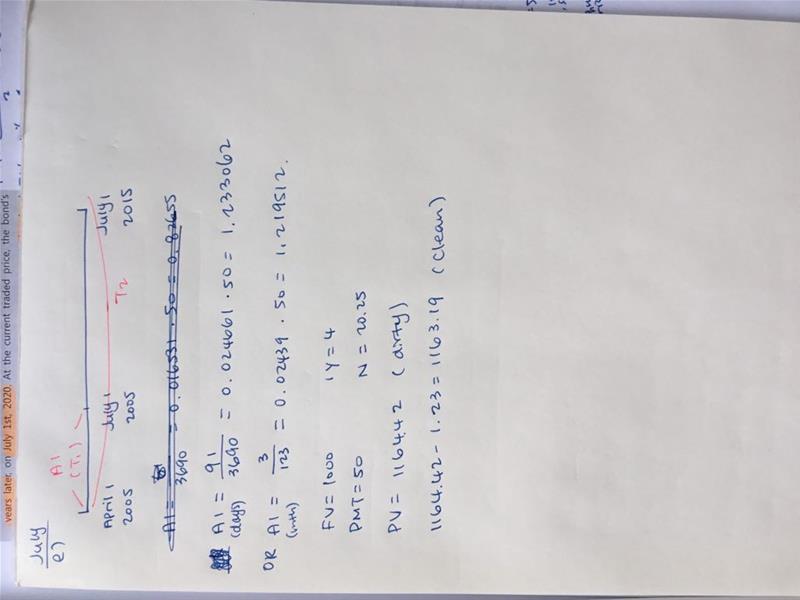 years later, on July 1st, 2020. At the current traded price, the bond's
July
e)
AI
(T1)
T2
April 1
2005
July 1
2005
July 1
2015
AI = 3690 = 0.016531 . 50 = 0.82655
AI = 91/3690 = 0.024661 . 50 = 1.233062
(days)
OR AI = 3/123 = 0.02439 . 50 = 1.219512.
(mth)
FV = 1000 IY = 4
PMT = 50 N = 20.25
PV = 1164.42 (dirty)
1164.42 - 1.23 = 1163.19 (clean)